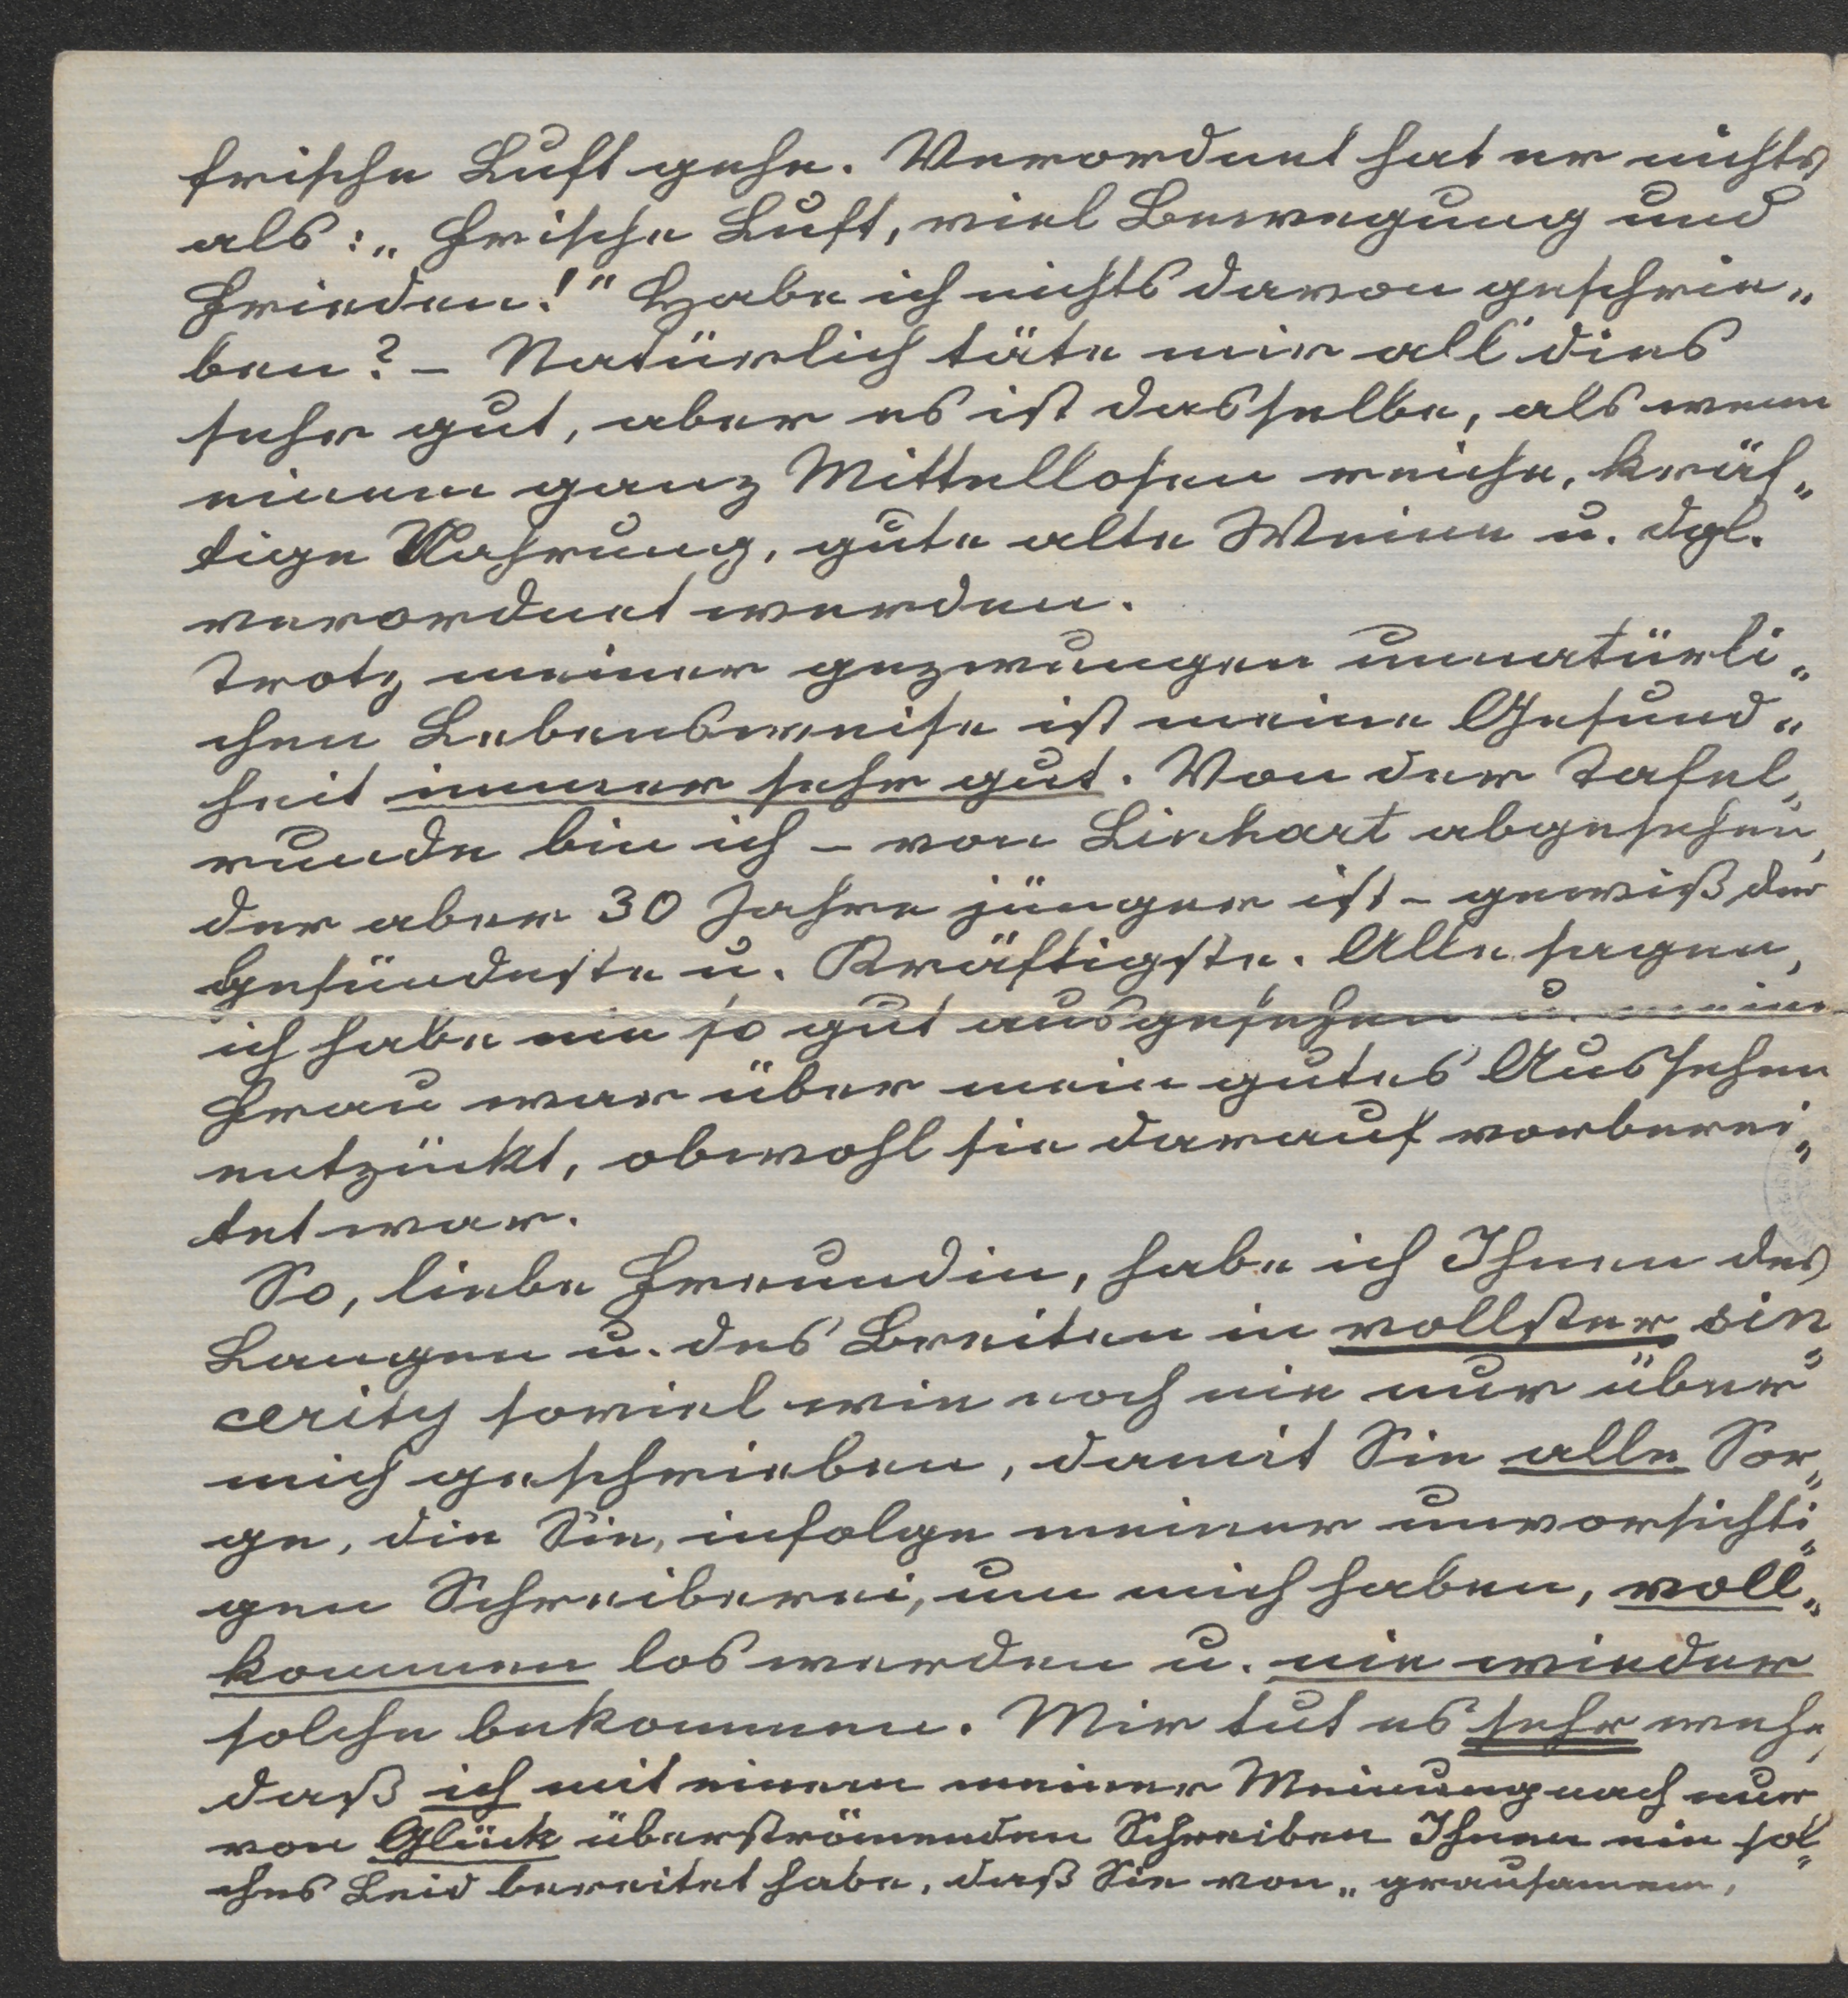 frische Luft gehe. Verordnet hat er nichts
als: „Frische Luft, viel Bewegung und
Frieden!" Habe ich nichts davon geschrie„
ben? – Natürlich täte mir all' dies
sehr gut, aber es ist dasselbe, als wenn
einem ganz Mittellosen reiche, kräf„
tige Nahrung, gute alte Weine u. dgl.
verordnet werden.
Trotz meiner gezwungen unnatürli„
chen Lebensweise ist meine Gesund„
heit immer sehr gut. Von der Tafel„
runde bin ich – von Linhart abgesehen,
der aber 30 Jahre jünger ist – gewiß der
Gesündeste u. Kräftigste. Alle sagen,
ich habe nie so gut ausgesehen u. meine
Frau war über mein gutes Aussehen
entzückt, obwohl sie darauf vorberei„
tet war.
So, liebe Freundin, habe ich Ihnen des
Langen u. des Breiten in vollster sin„
cerity soviel wie noch nie nur über
mich geschrieben, damit Sie alle Sor„
ge, die Sie, infolge meiner unvorsichti„
gen Schreiberei, um mich haben, voll„
kommen los werden u. nie wieder
solche bekommen. Mir tut es sehr wehe,
daß ich mit einem meiner Meinung nach nur
von Glück überströmenden Schreiben Ihnen ein sol„
ches Leid bereitet habe, daß Sie von „grausamem,